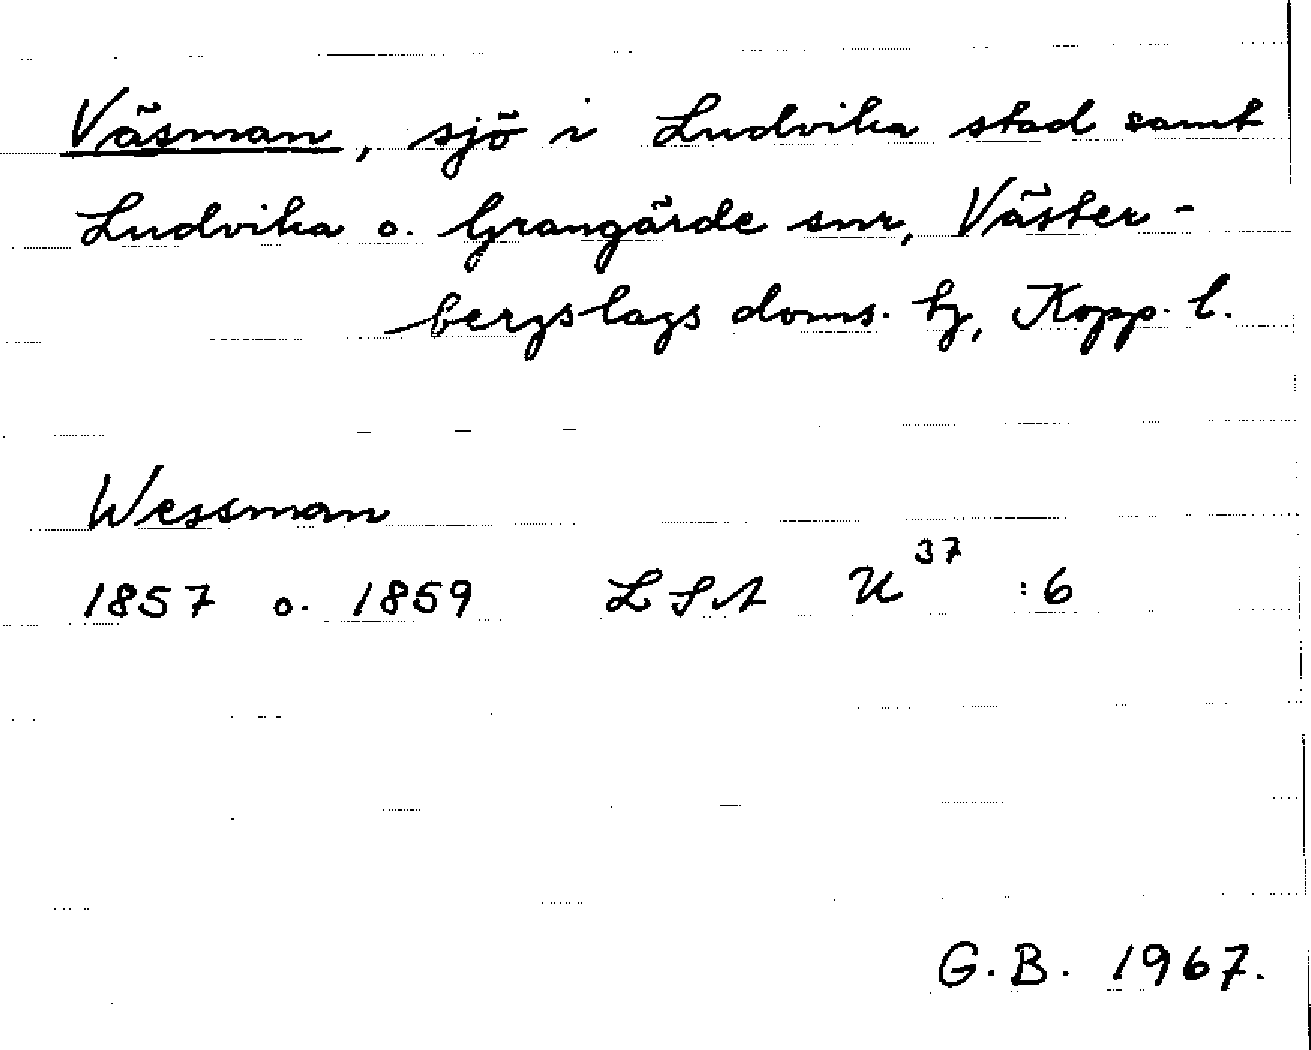 Väsman, sjö i Ludvika stad samt
Ludvika o. Grangärde snr, Väster-
bergslags doms. hg, Kopp. l.
Wessman
1857 o. 1859 LSA U³⁷ :6
G.B. 1967.